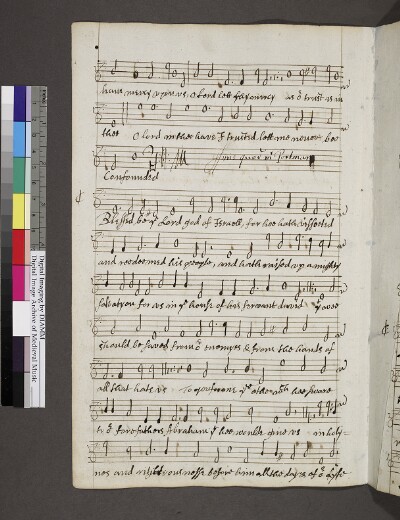 have mercy upon us. O Lord lett thy mercy as o trust is in
thee O Lord in thee have I trusted lett me never bee
Confounded
Blessed be ye Lord god of Israell, for hee hath vissited
and redeemed his people, and hath raised up a mighty
salvation for us in ye house of his servant david yt wee
should be saved from o enemyes & from the hands of
all that hate us To performe ye othe wch hee sware
to o forefathers Abraham yt hee would give us in holy-
nes and righteousnesse before him all the dayes of o lyfe
Digital Imaging by DIAMM
Digital Image Archive of Medieval Music